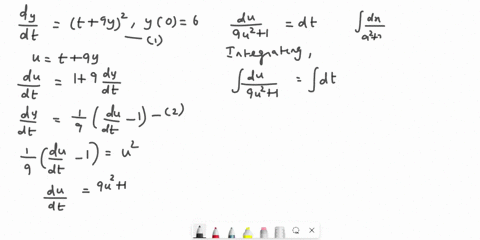 dy/dt = (t+9y)², y(0)=6
—(1)
u = t+9y
du/dt = 1+9 dy/dt
dy/dt = 1/9 (du/dt - 1) -(2)
1/9 (du/dt - 1) = u²
du/dt = 9u²+1
du/9u²+1 = dt
Integrating,
∫ du/9u²+1 = ∫dt